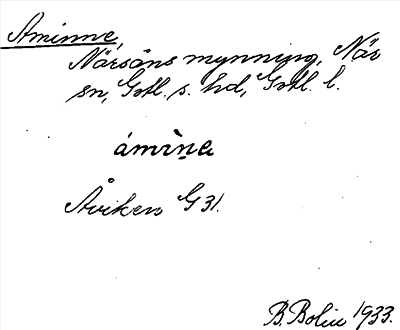 Åminne,
Närsåns mynning, När
sn, Gotl. s. hd, Gotl. l.
ámìna
Åviken G 31.
B. Bolin 1933.